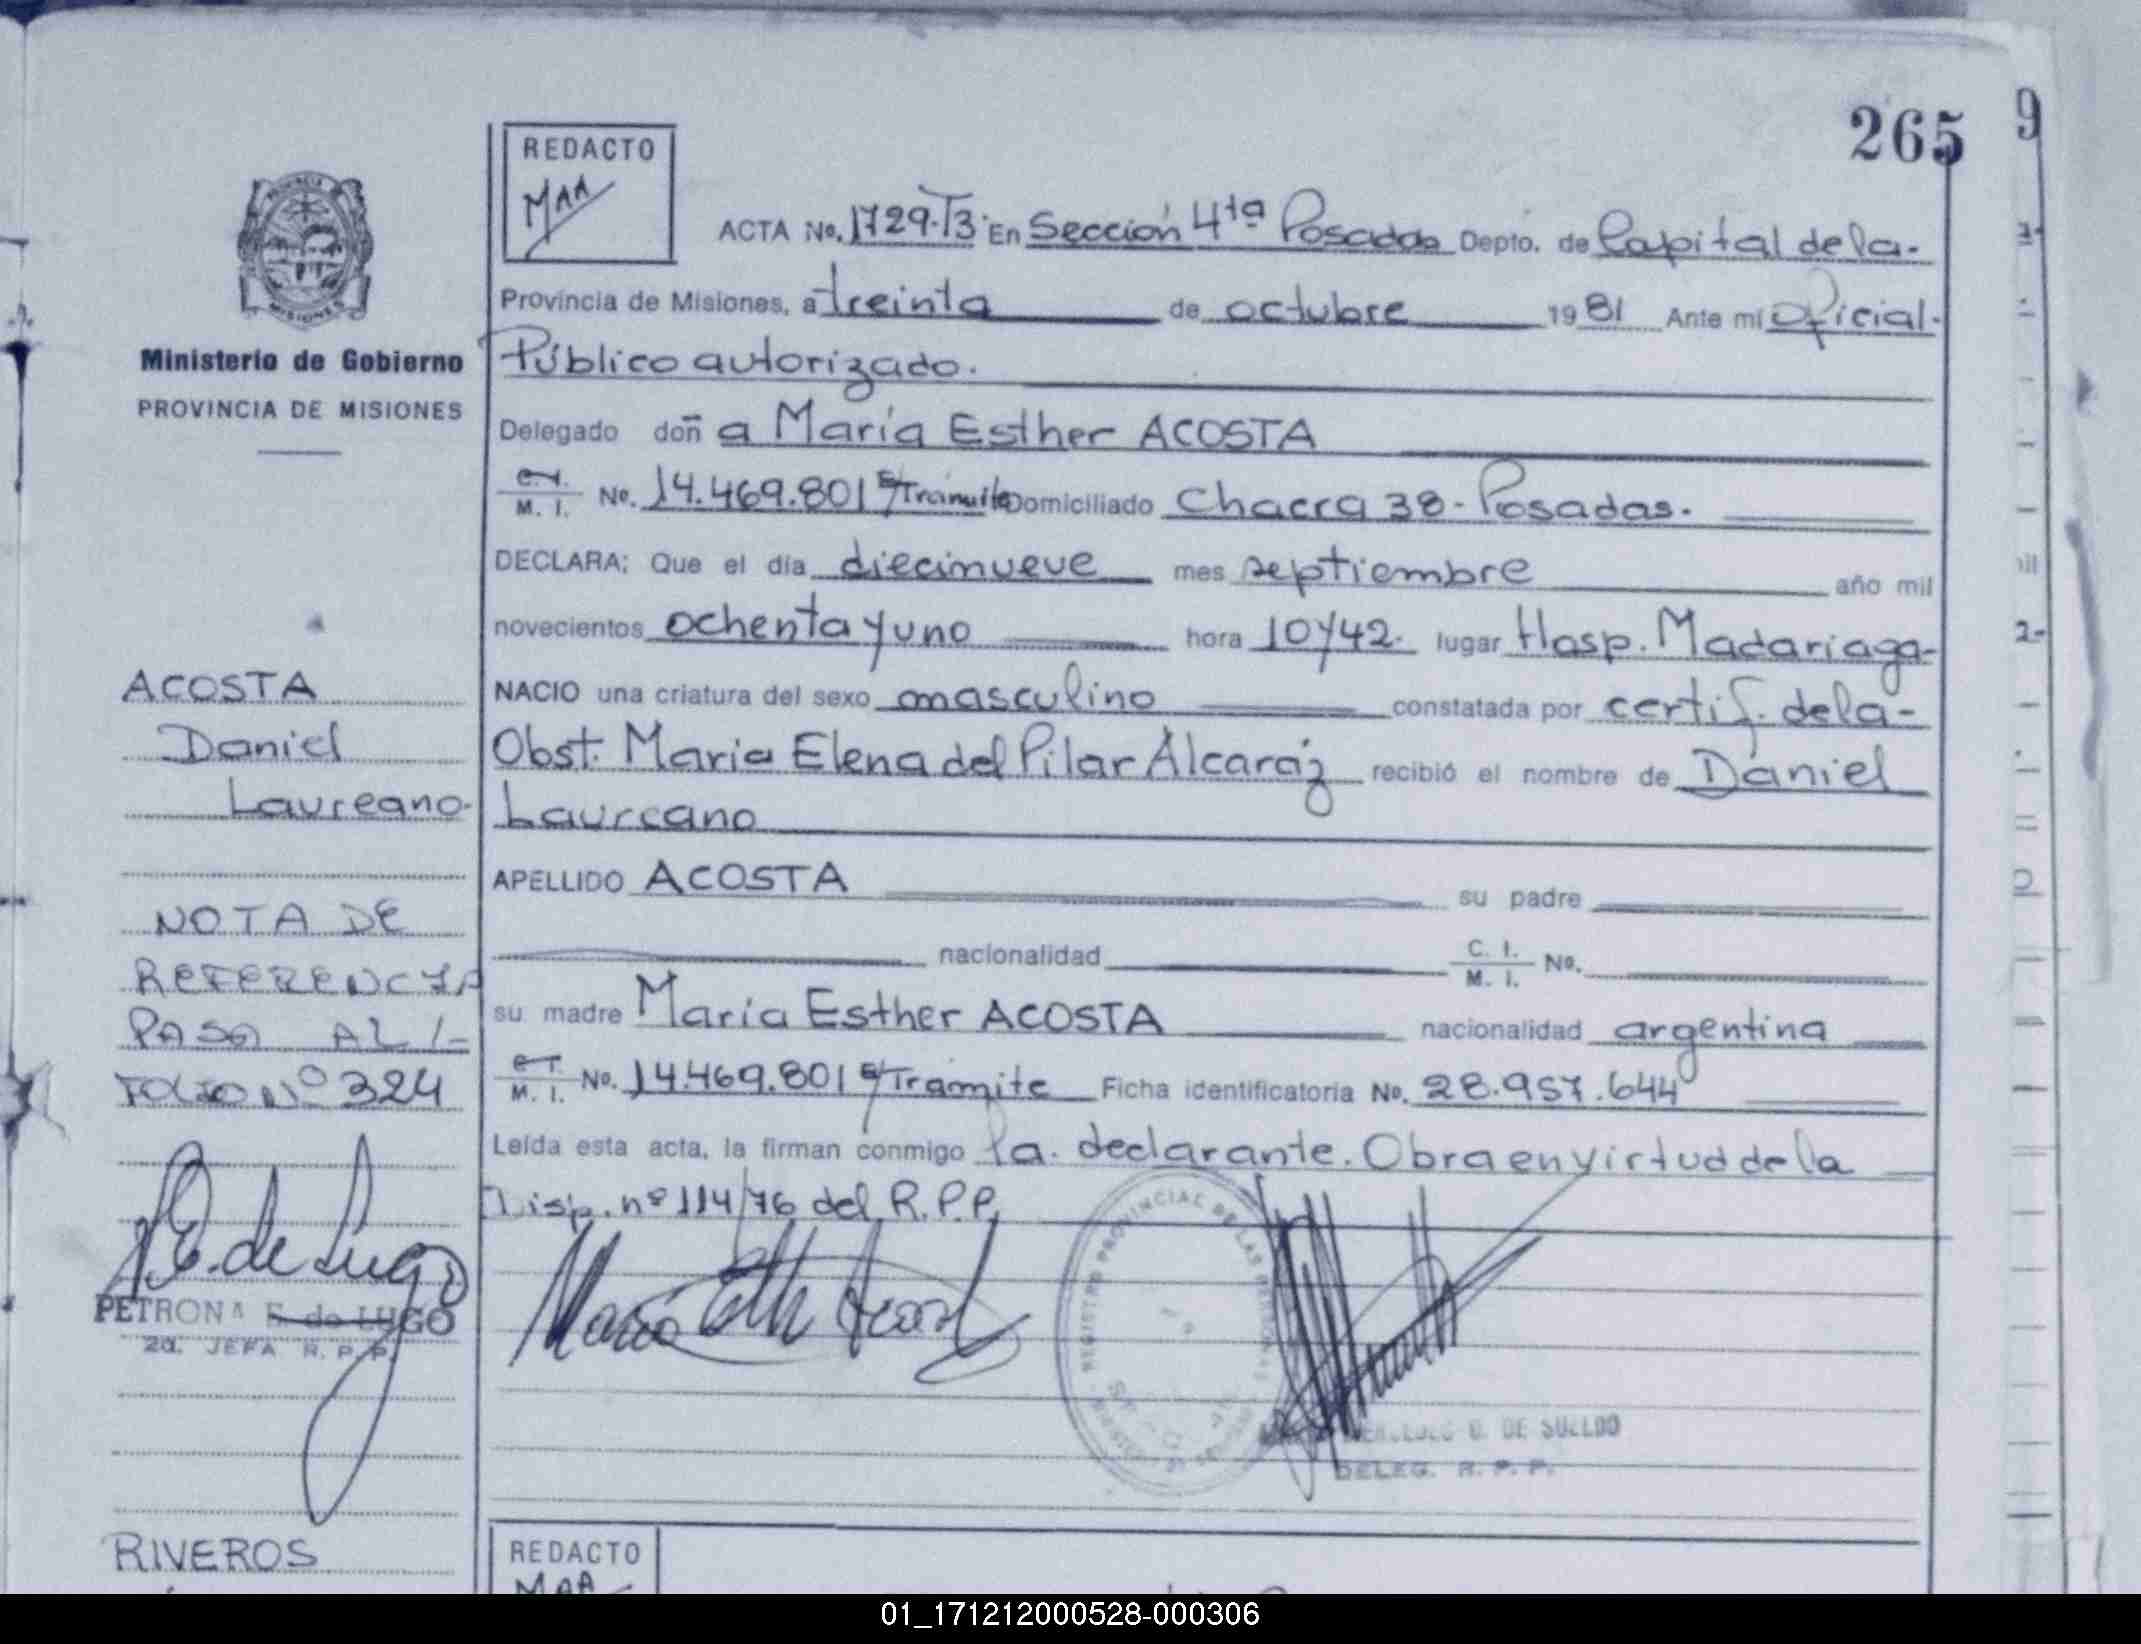 265
9
REDACTO
MAA
ACTA No. 1729.T3. En Sección 4ta Posadas Depto. de Capital de la.
Provincia de Misiones, a treinta de octubre 1981 Ante mí Oficial.
Público autorizado.
Delegado doñ a María Esther ACOSTA
C.I. M. I. No. 14.469.801 E/Tramite Domiciliado Chacra 38 - Posadas.
DECLARA: Que el día diecinueve mes septiembre año mil
novecientos ochenta y uno hora 10 y 42. lugar Hosp. Madariaga-
NACIO una criatura del sexo masculino constatada por certif. de la-
Obst. Maria Elena del Pilar Alcaráz recibió el nombre de Daniel
Laureano
APELLIDO ACOSTA su padre
nacionalidad C. I. M. I. No.
su madre María Esther ACOSTA nacionalidad argentina
C.I. M. I. No. 14.469.801 E/Tramite Ficha identificatoria No. 28.957.644
Leída esta acta, la firman conmigo la. declarante. Obra en virtud de la
Disp. nº 114/76 del R.P.P.
Maria Esther Acosta
REGISTRO PROVINCIAL DE LAS PERSONAS
DE SUELDO
DELEG. R. P. P.
MISIONES
Ministerio de Gobierno
PROVINCIA DE MISIONES
ACOSTA
Daniel
Laureano.
NOTA DE
REFERENCIA
PASA AL /-
FOLIO Nº 324
P.E. de Lugo
PETRONA E. de LUGO
2a. JEFA R. P. P.
RIVEROS
REDACTO
MAA
01_171212000528-000306